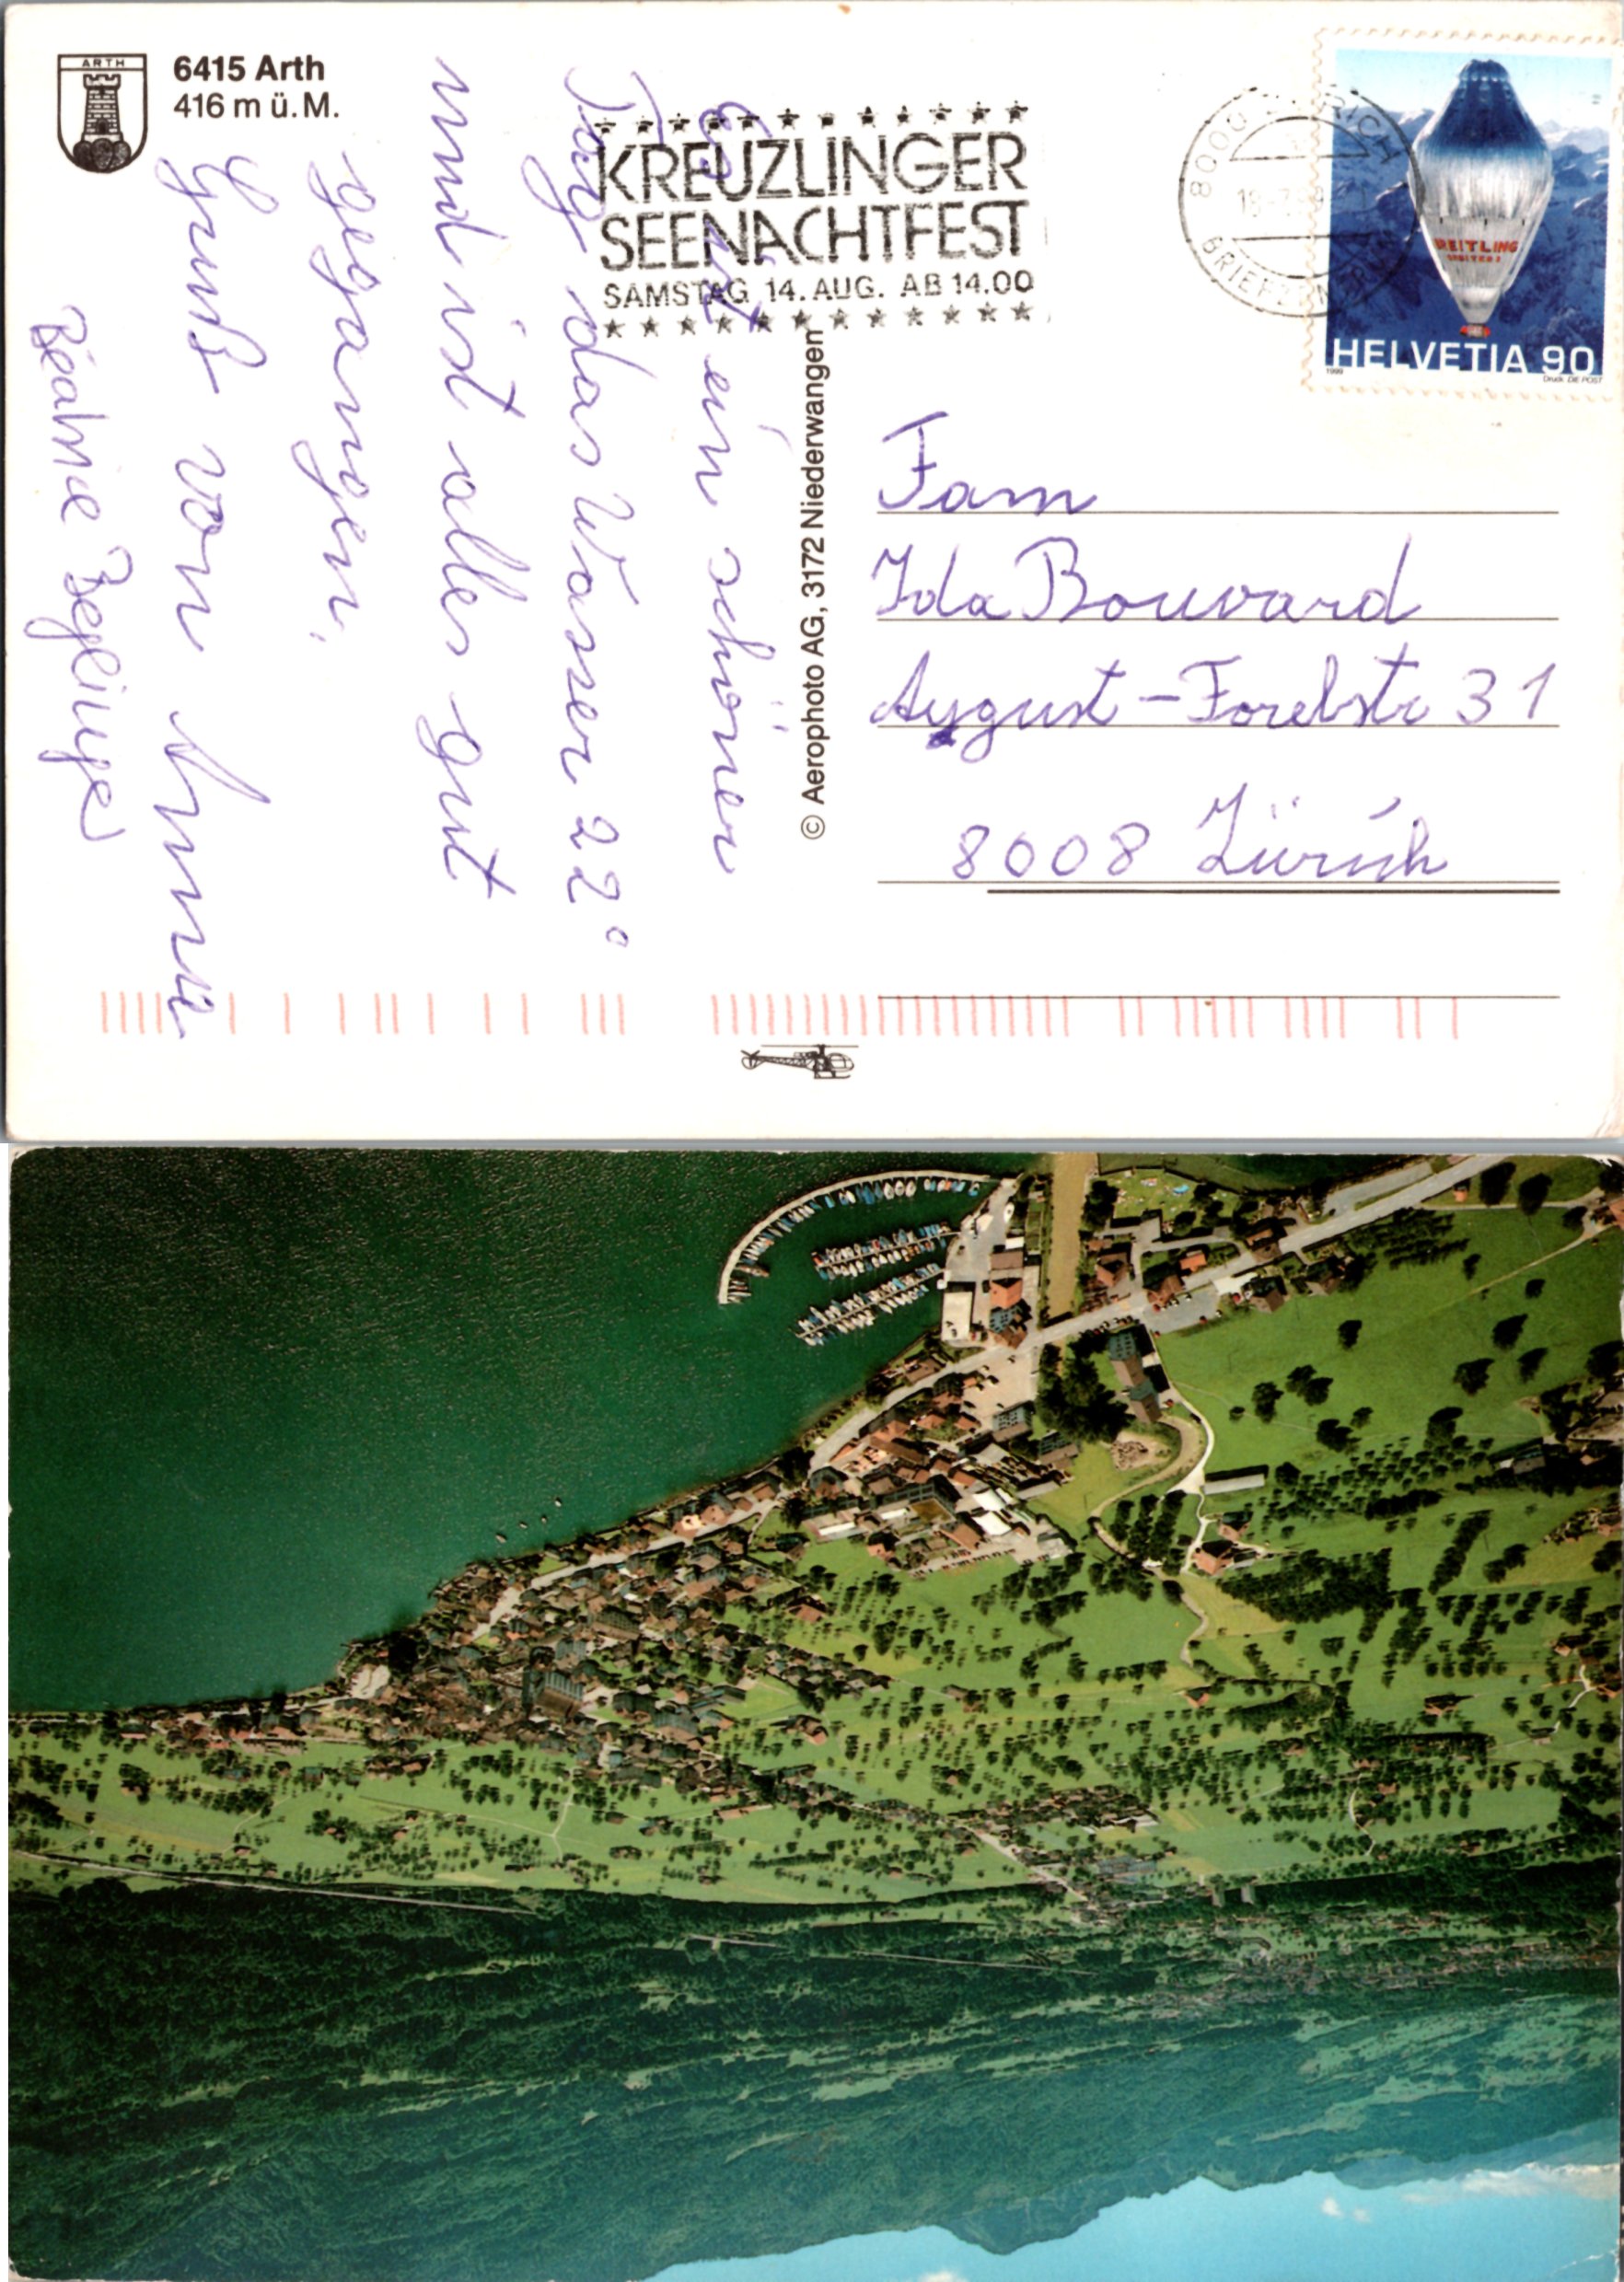 ARTH
6415 Arth
416 m ü. M.
KREUZLINGER
SEENACHTFEST
SAMSTAG 14. AUG. AB 14.00
8000 ZÜRICH
BRIEFZENTRUM
BREITLING
ORBITER 3
HELVETIA 90
1999
Druck DIE POST
Es ist ein schöner
Tag das Wasser 22°
und ist alles gut
gegangen.
Gruß von Annie
Béatrice Beglinger
© Aerophoto AG, 3172 Niederwangen
Fam
Ida Bouvard
August-Forelstr 31
8008 Zürich